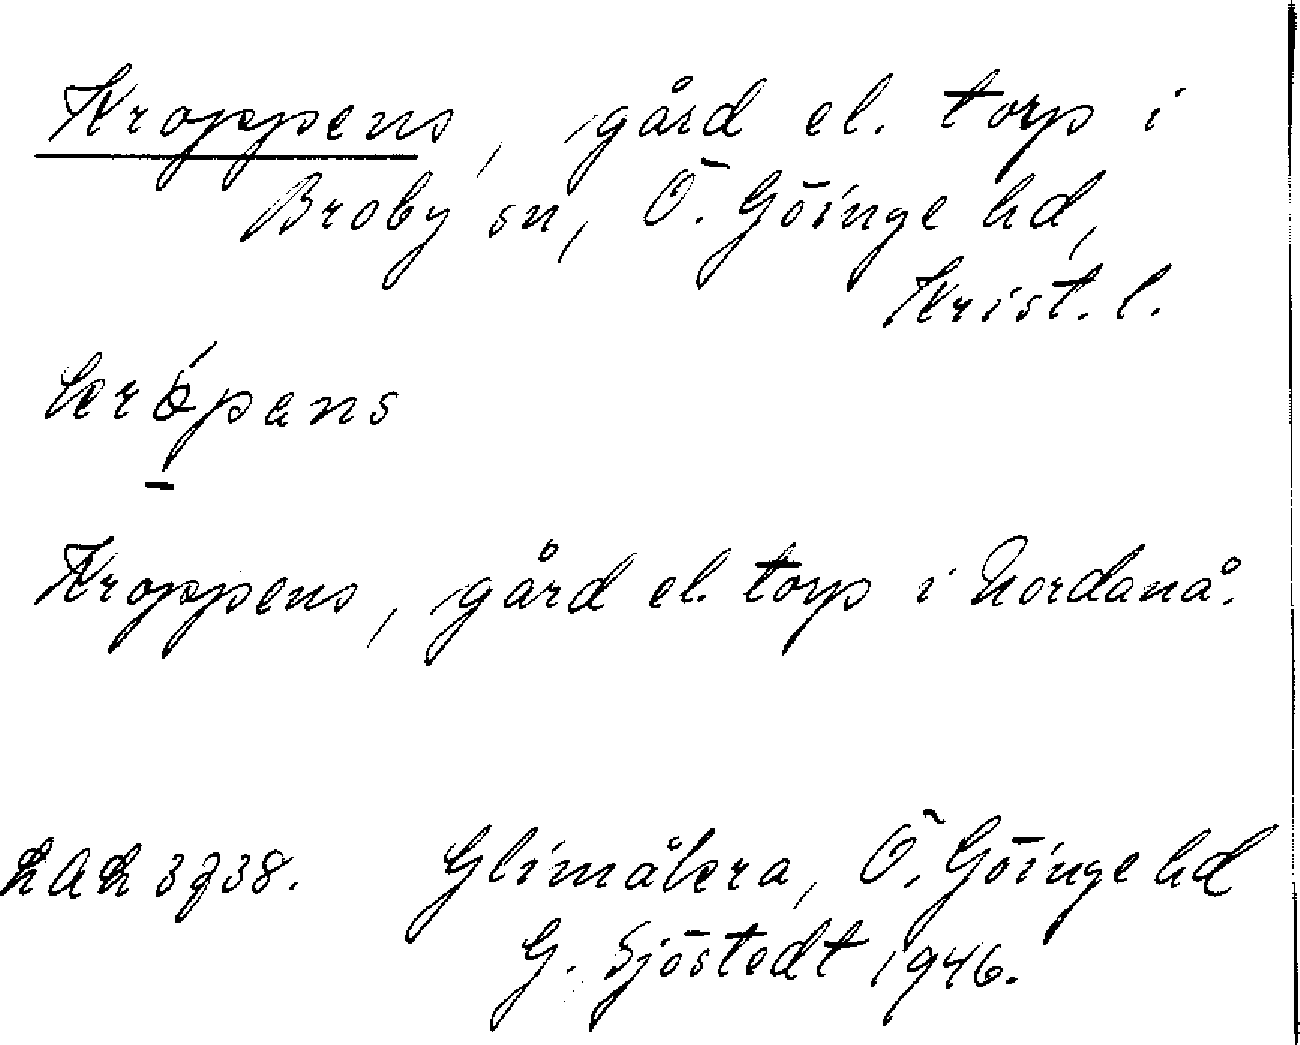 Kroppens, gård el. torp i
Broby sn, Ö. Göinge hd,
Krist. l.
Kroppens, gård el. torp i Nordanå.
LAL 3738. Glimåkra, Ö. Göinge hd
G. Sjöstedt 1946.